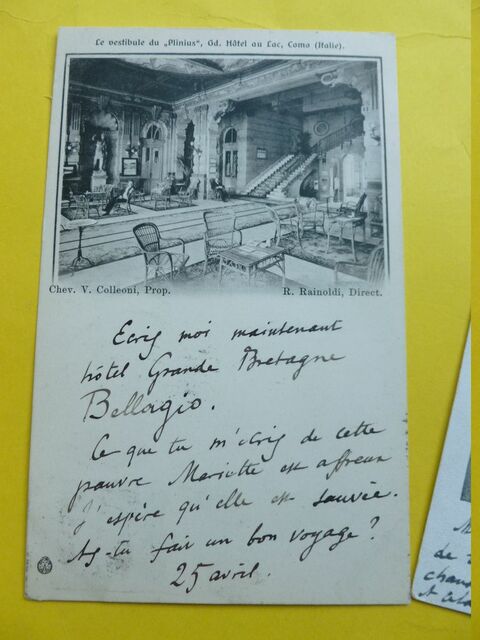 Le vestibule du „Plinius", Gd. Hôtel au Lac, Como (Italie).
Chev. V. Colleoni, Prop. R. Rainoldi, Direct.
Ecris moi maintenant
hôtel Grande Bretagne
Bellagio.
Ce que tu m'écris de cette
pauvre Mariette est affreux
J'espère qu'elle est sauvée.
As-tu fait un bon voyage?
25 avril.
M
de
chau